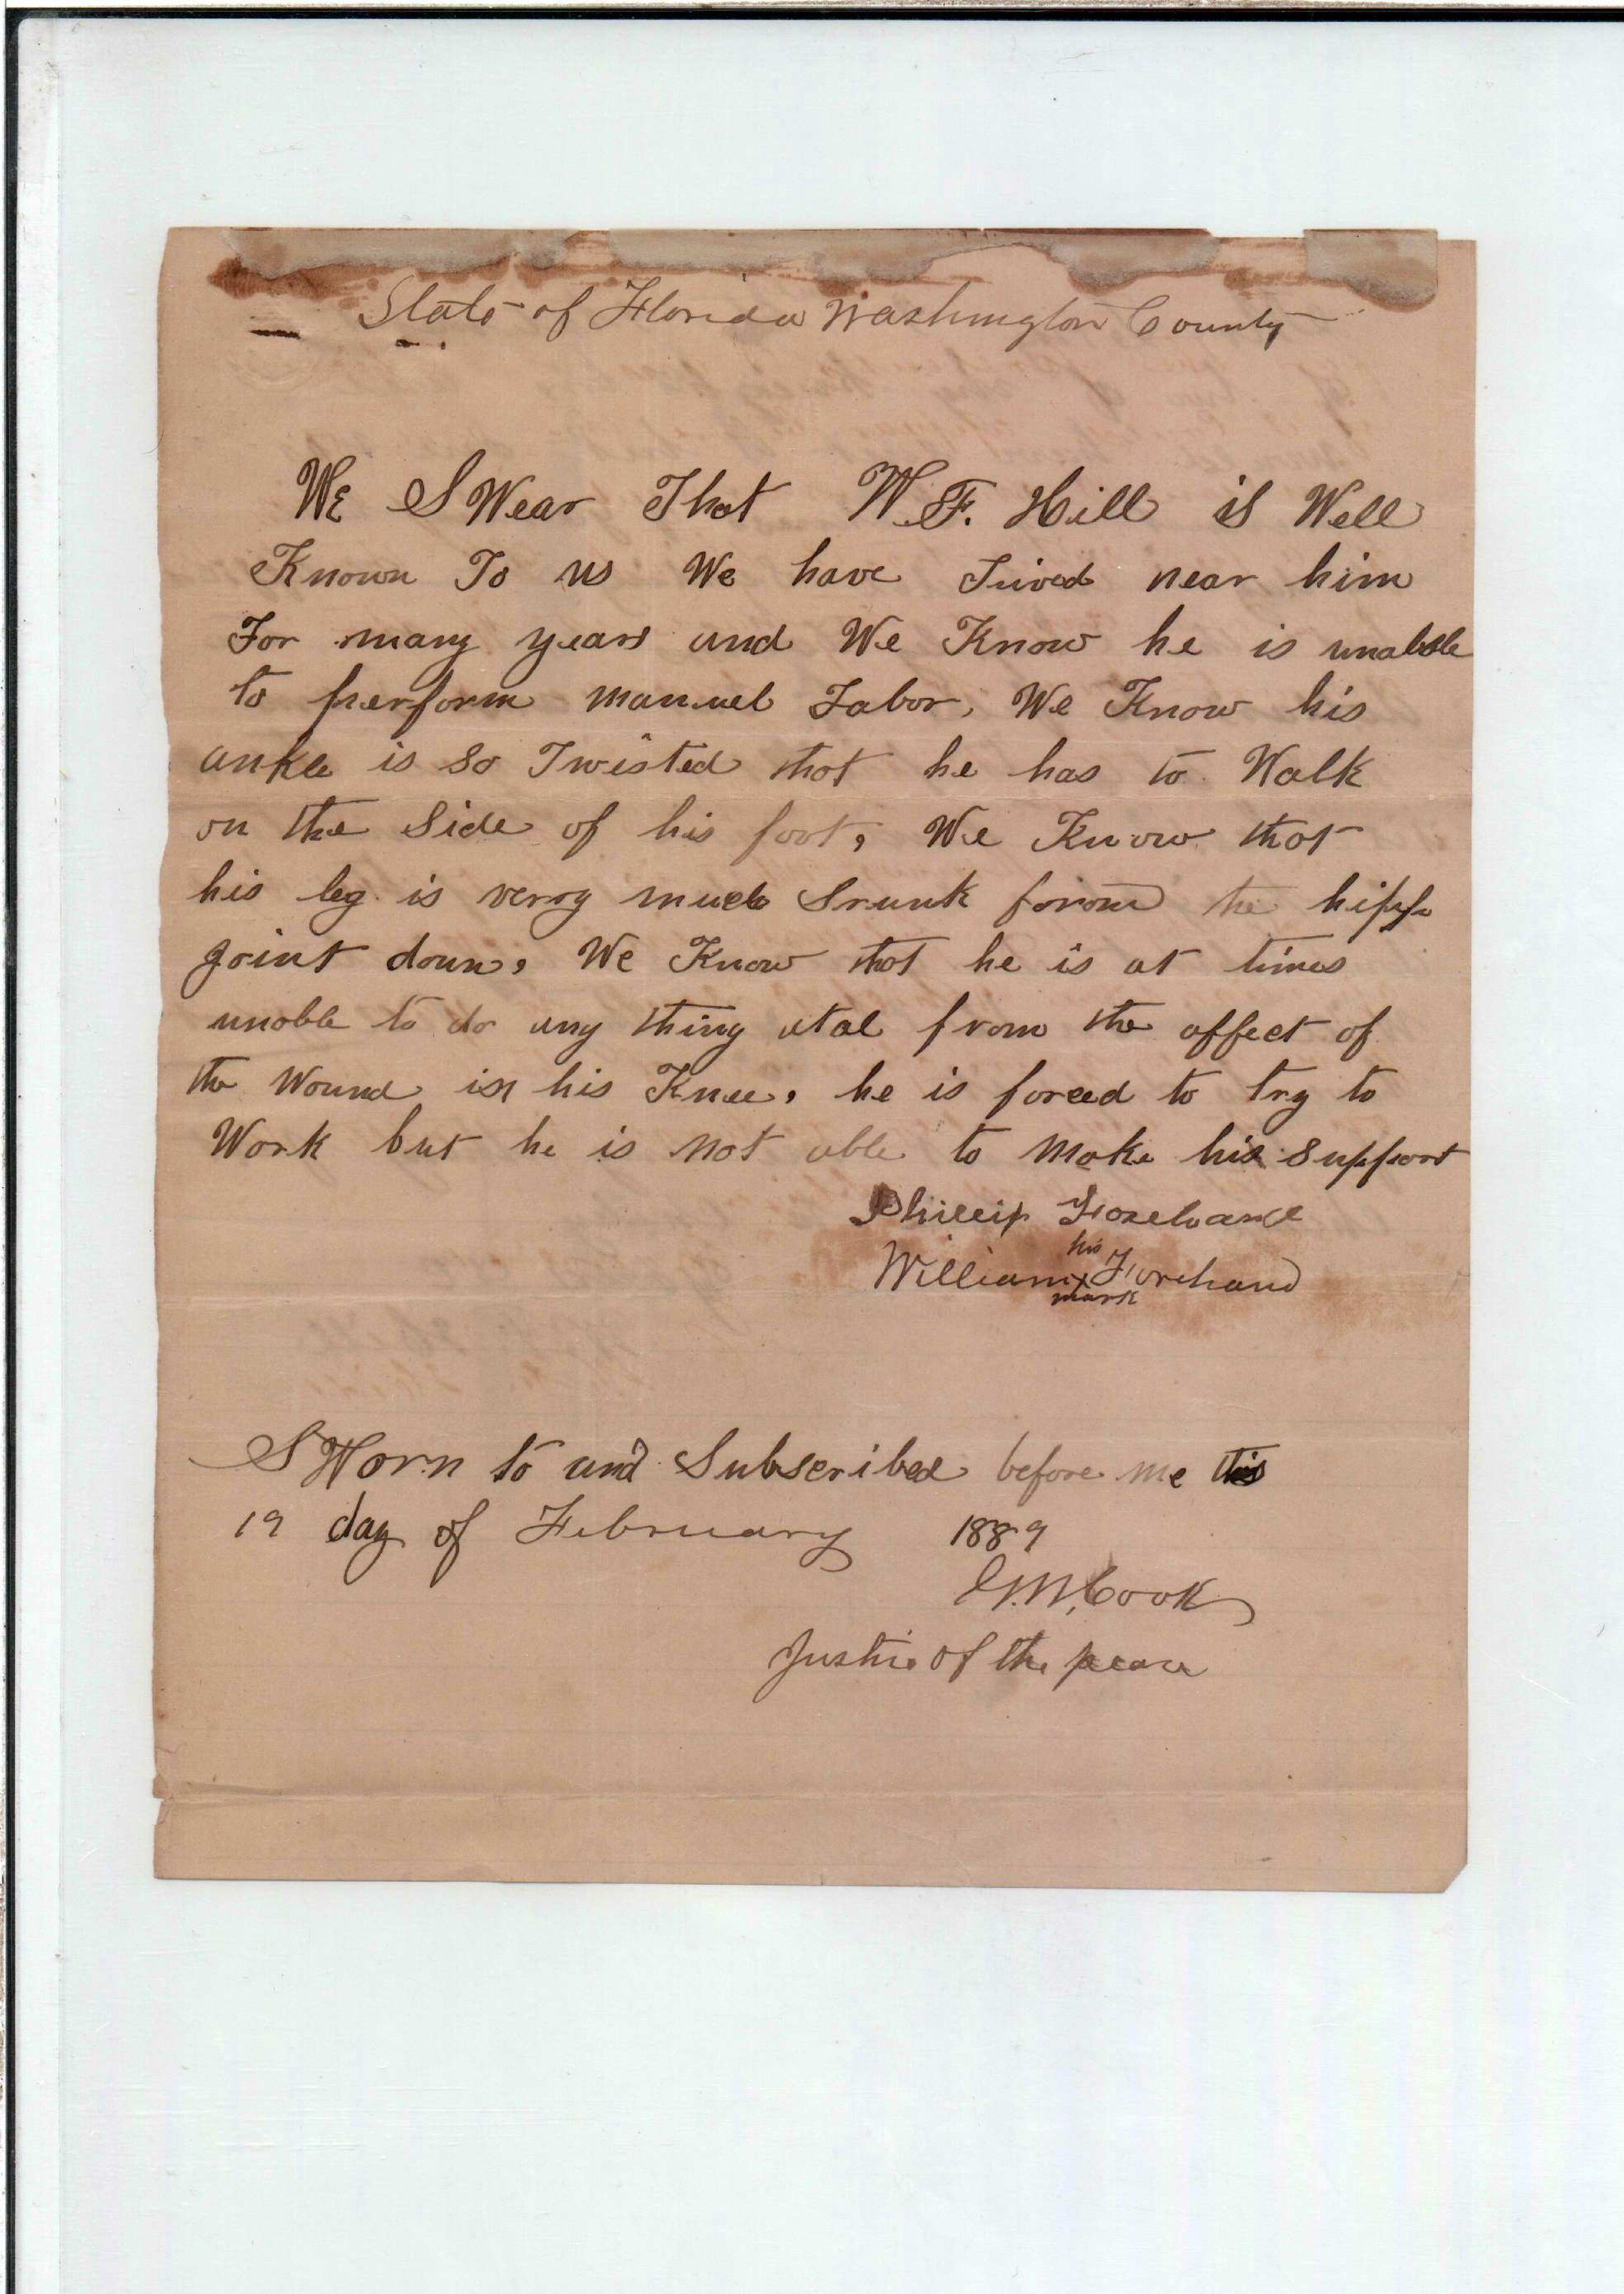 State of Florida Washington County
We SWear That W.F. Hill is Well
Known To us We have Lived near him
For many years and We Know he is unable
to perform manuel Labor, We Know his
ankle is so Twisted that he has to Walk
on the Side of his foot, We Know that
his leg is verry much Srunk from the hipp
joint doun, We Know that he is at times
unable to do any thing atal from the affect of
the Wound in his Knee, he is forced to try to
Work but he is not able to make his support
Phillip
his
William x Forehand
mark
SWorn to and Subscribed before me this
19 day of February 1889
G.W. Cook
Justice of the peace